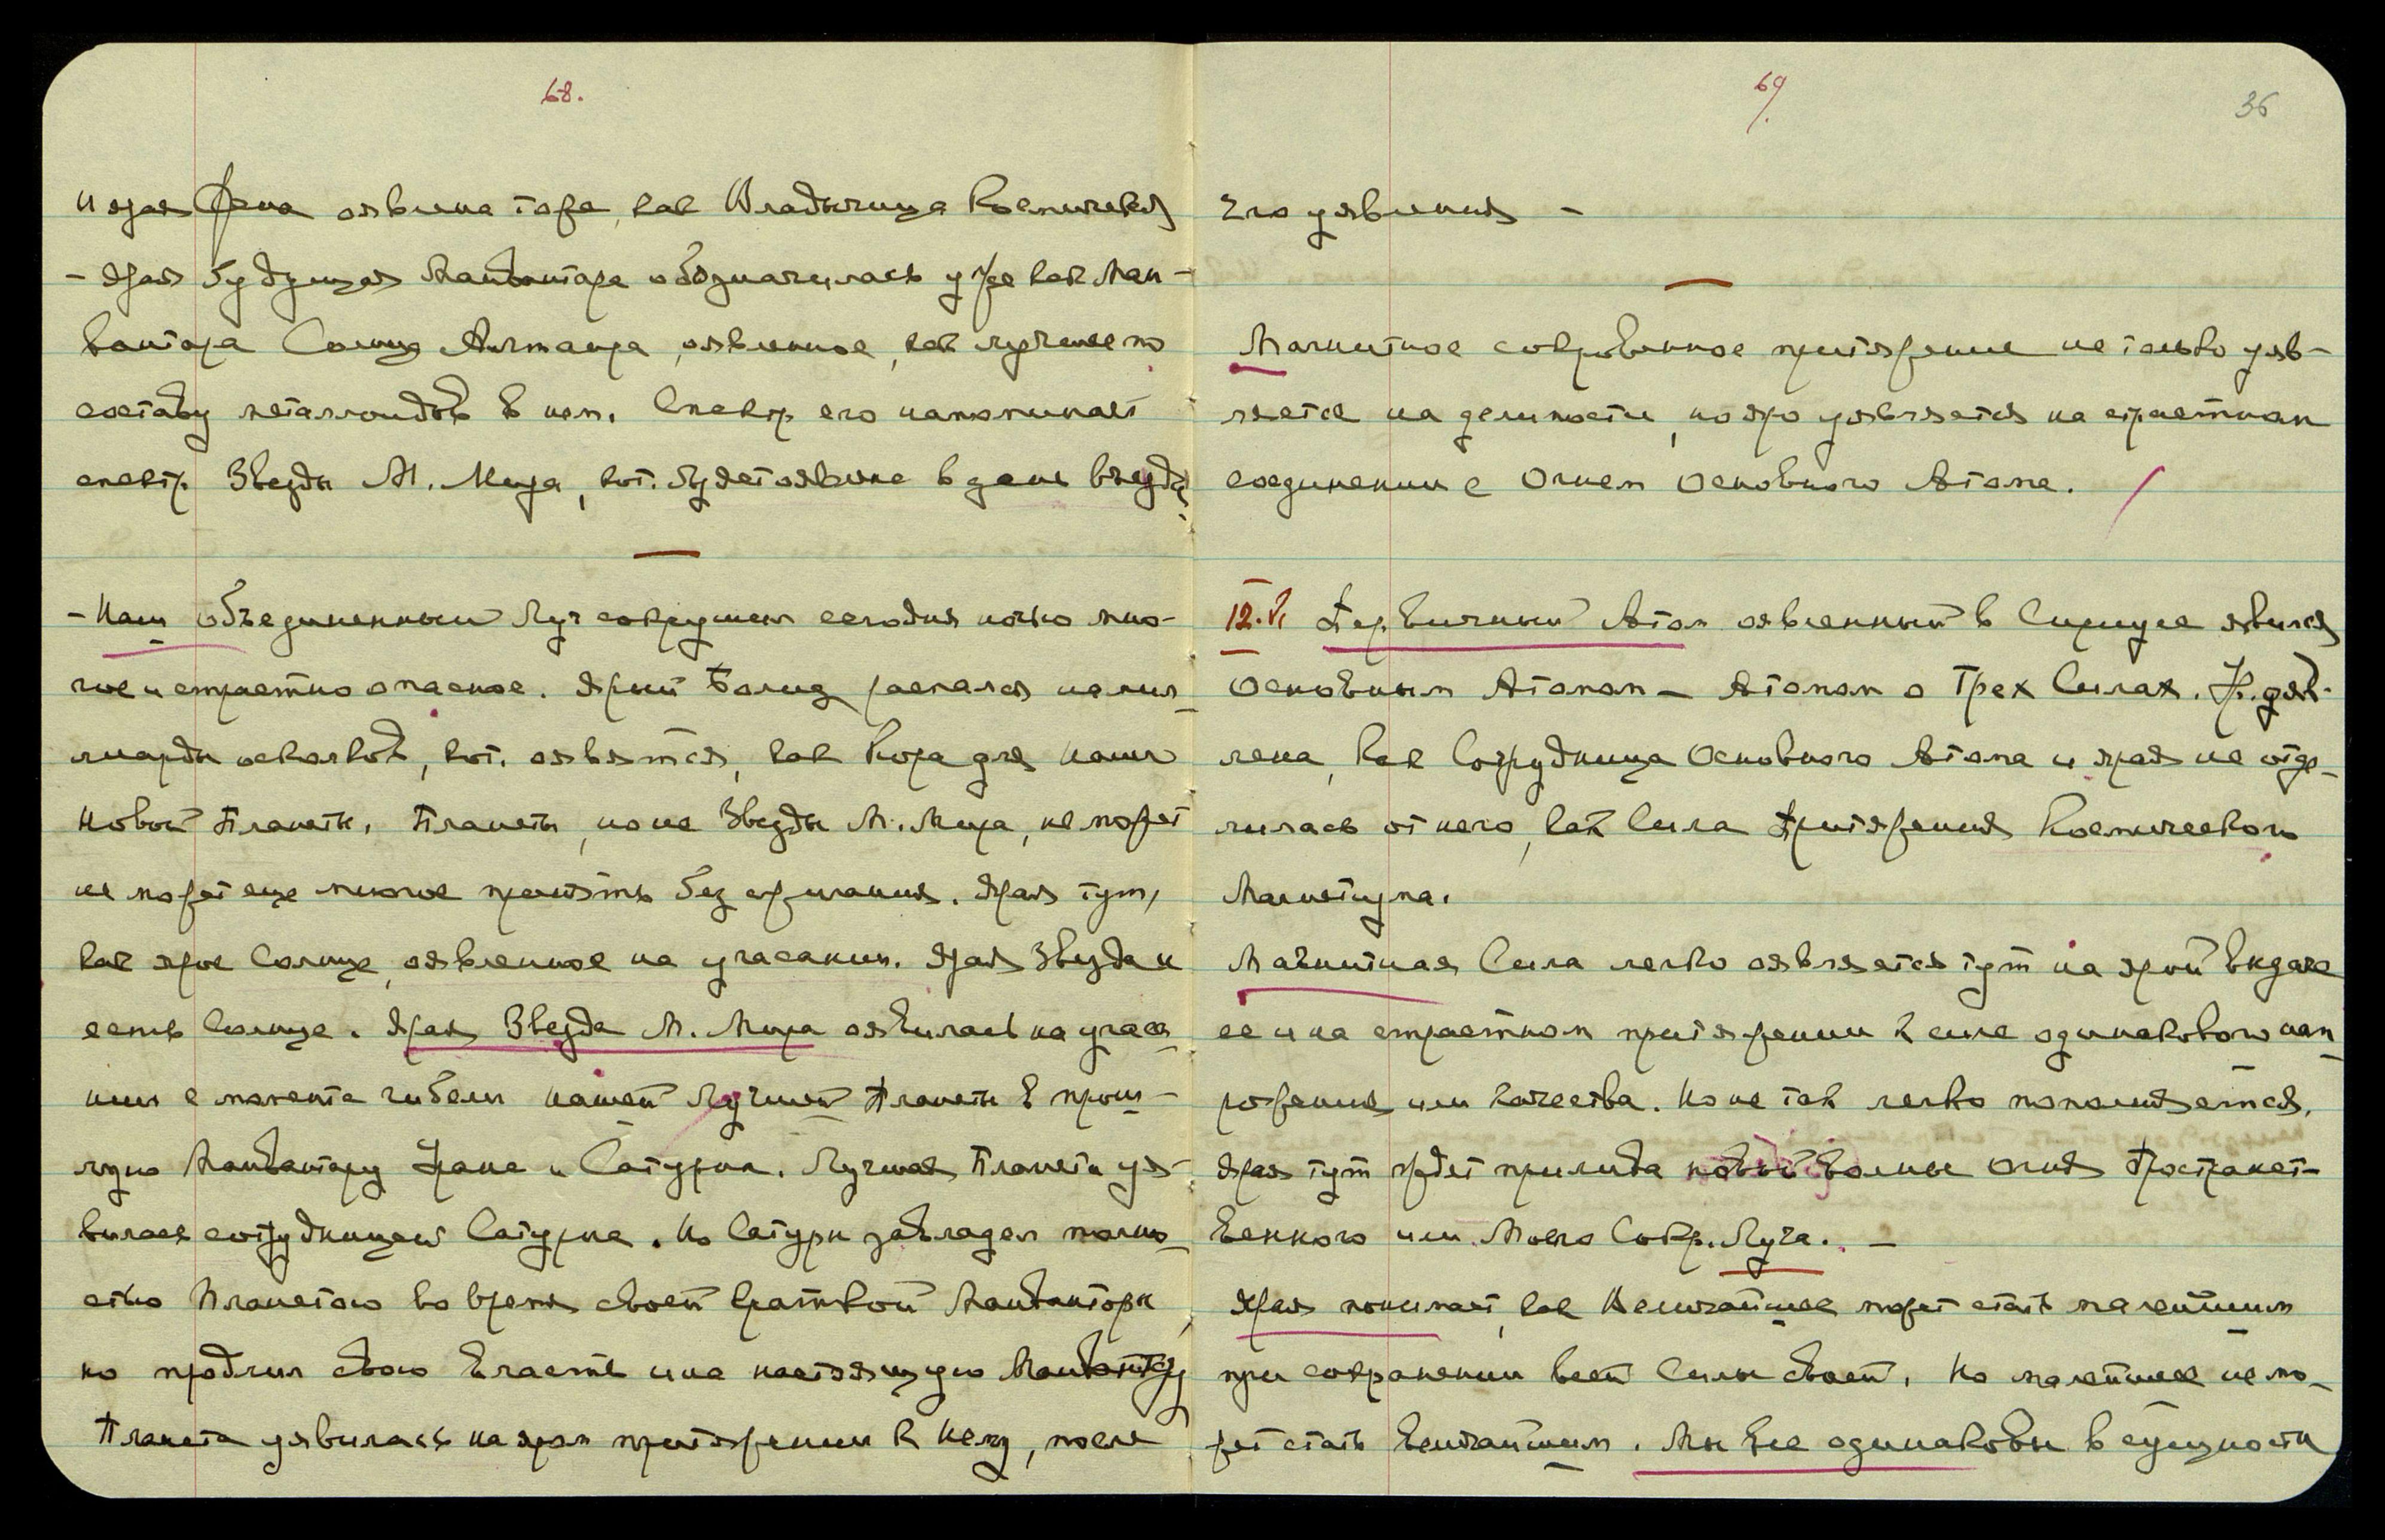 68.
и ярая Урана оявлена тара, как Владычица Космическая
- Ярая будущая Манвантара обозначилась уже как Ман-
вантара Солнца Альтаира, оявленное, как лучшее по
составу металлоидов в нем. Спектр его напоминает
спектр Звезды М. Мира, кот. будет оявлена в день Звезды.
- Наш объединенный Луч сокрушил сегодня ночью мно-
гое и страстно опасное. Ярый Болид распался на мил-
лиарды осколков, кот. оявятся, как Кора для нашей
Новой Планеты. Планеты, но не Звезды М. Мира, не может
не может еще многое принять без сгорания. Ярая тут,
как ярое Солнце, оявленное на угасании. Ярая Звезда и
есть Солнце. Ярая Звезда М. Мира оявилась на угаса
нии с момента гибели нашей Лучшей Планеты в прош-
лую Манвантару Урана и Сатурна. Лучшая Планета уя-
вилась сотрудницей Сатурна. Но Сатурн завладел полно-
стью Планетою во время своей краткой Манвантары,
но продлил свою власть и на настоящую Манвантару
Планета уявилась на яром притяжении к Нему, после
69.
36
его уявления -
Магнитное сокровенное притяжение не только уяв-
ляется на делимости, но яро уявляется на страстном
соединении с Огнем Основного Атома.
12.VI Первичный Атом оявленный в Сириусе явился
Основным Атомом - Атомом о Трех Силах. Ур. уяв-
лена, как Сотрудница Основного Атома и ярая не отде-
лилась от него, как Сила Притяжения Космического
Магнетизма.
Магнитная Сила легко оявляется тут на ярой выдаче
ее и на страстном притяжении к силе одинакового нап-
ряжения или качества. Но не так легко пополняется.
Ярая тут ждет прилива новой волны огня Пространст-
венного или Моего Сокр. Луча. -
Ярая понимает, как Величайшее может стать малейшим
при сохранении всей Силы своей. Но малейшее не мо-
жет стать Величайшим. Мы все одинаковы в сущности